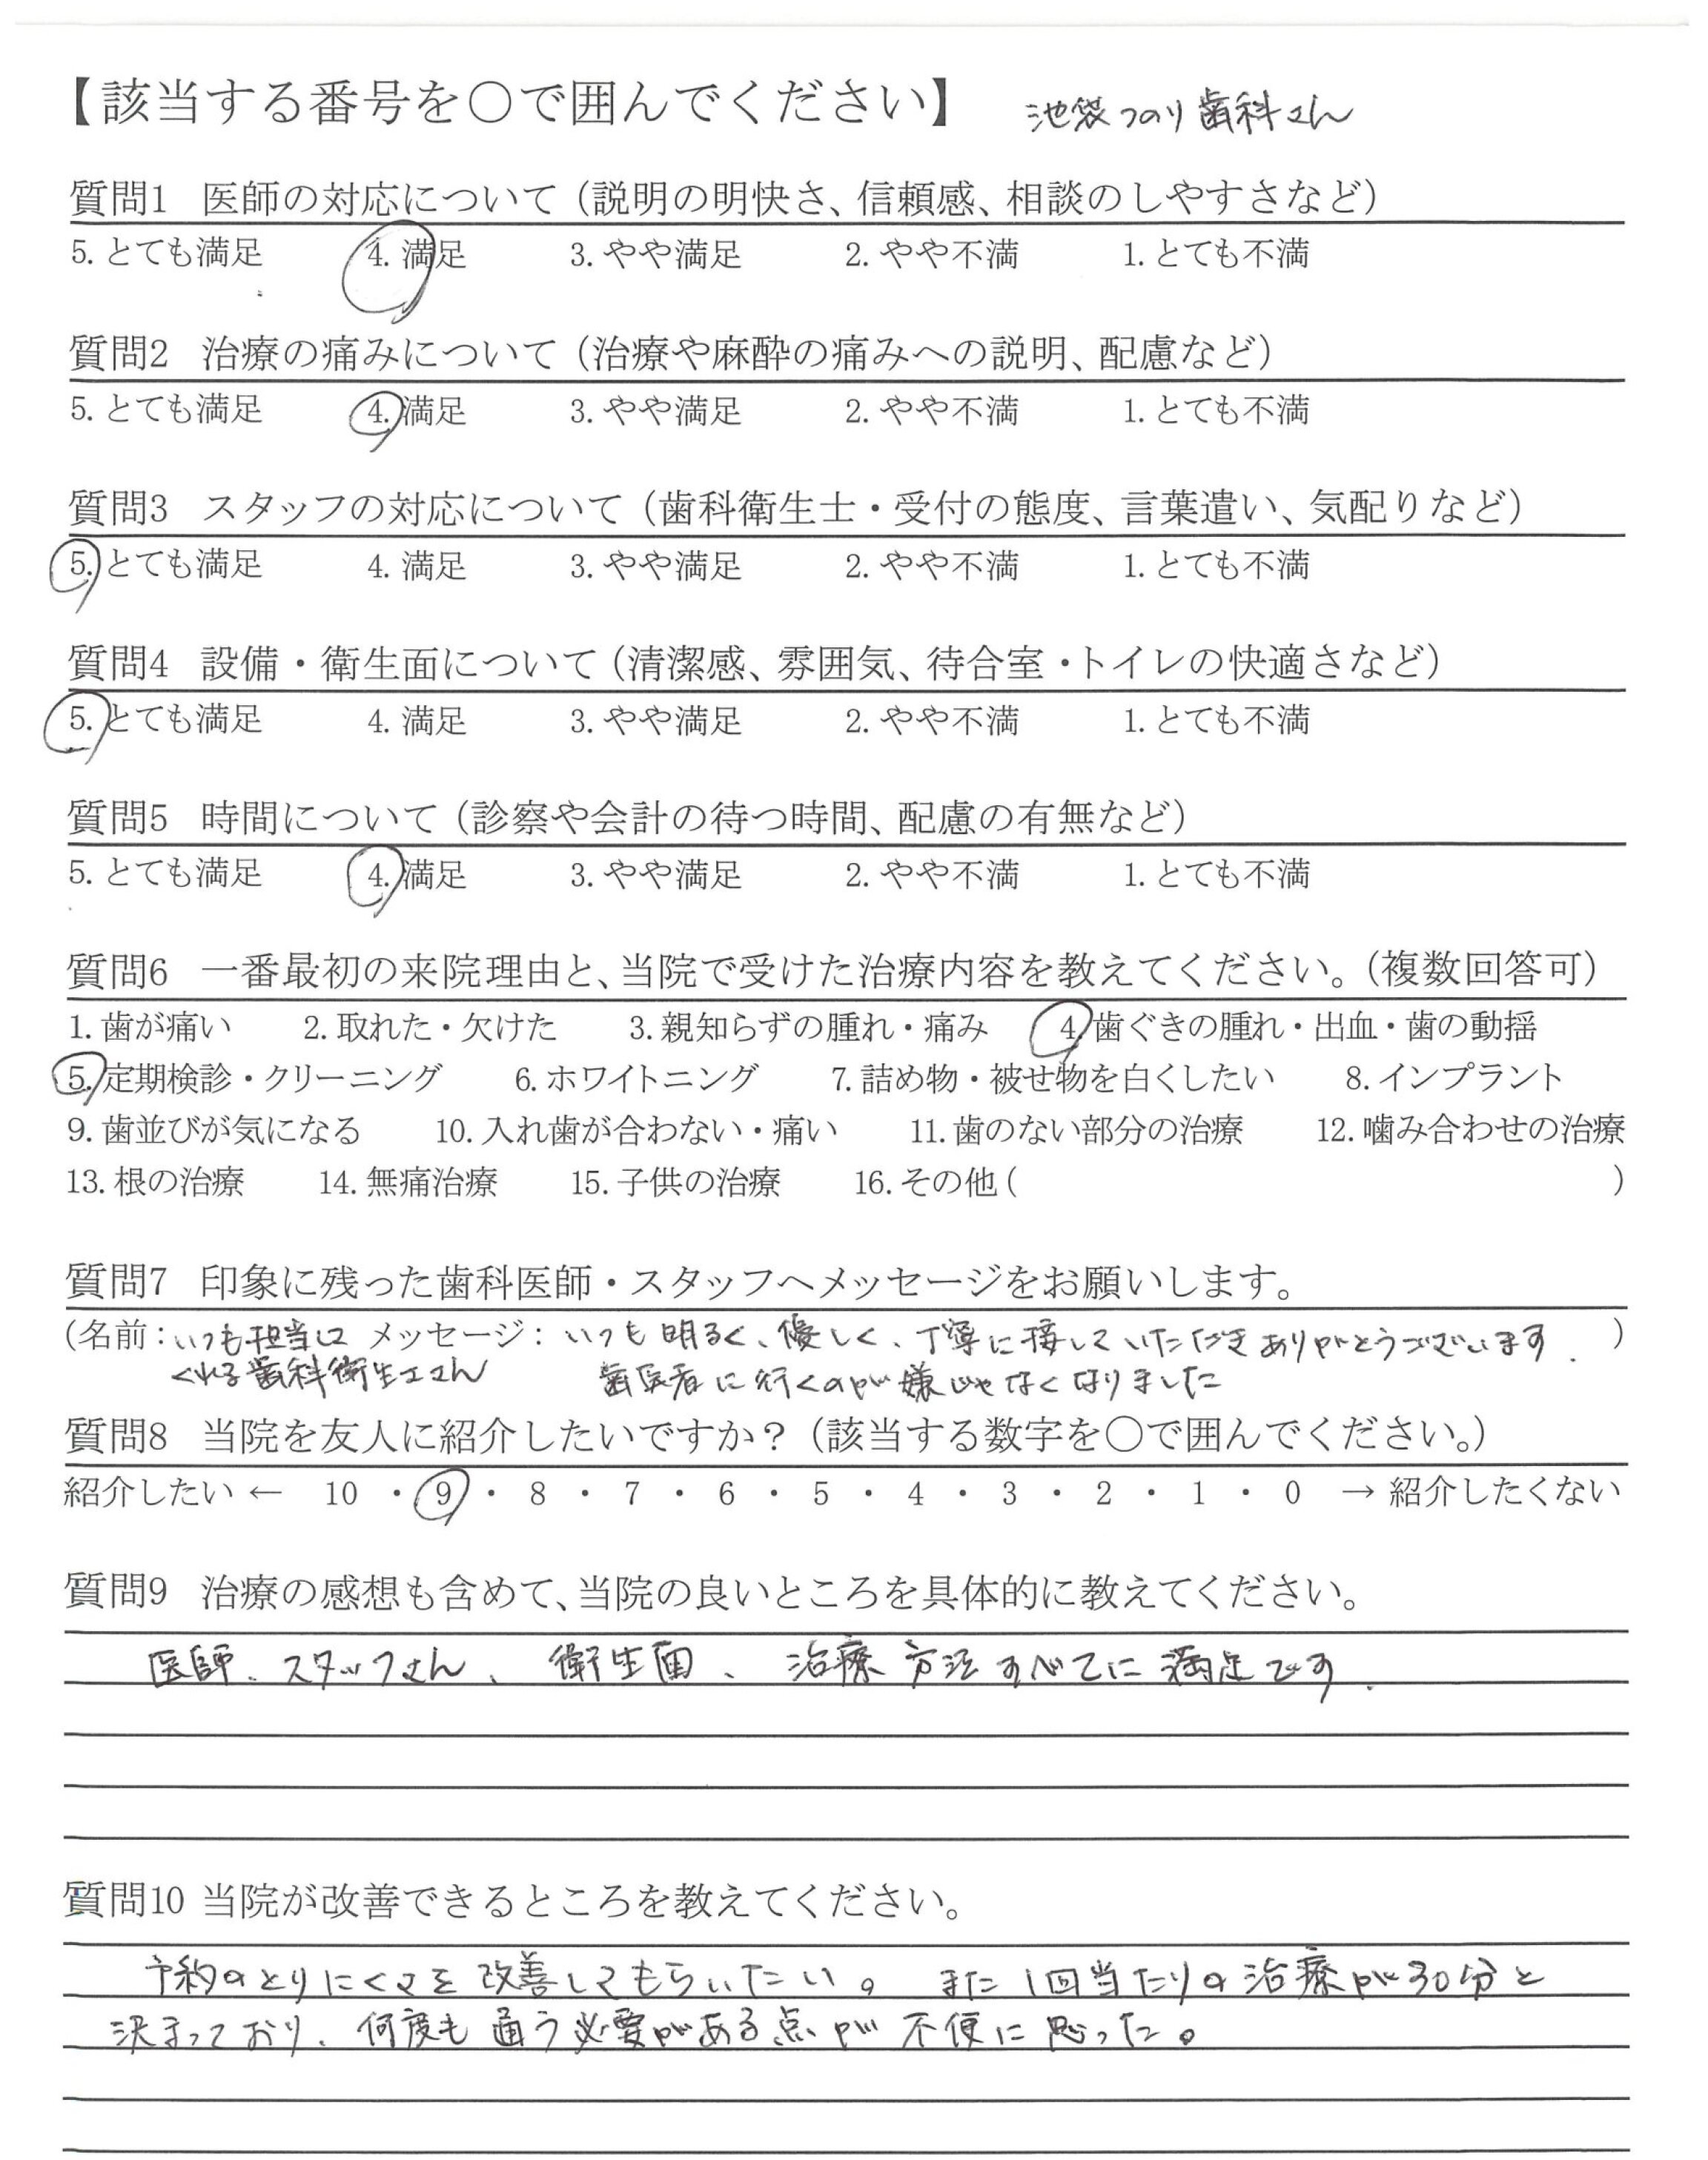 【該当する番号を〇で囲んでください】 池袋つのり歯科さん
質問1 医師の対応について(説明の明快さ、信頼感、相談のしやすさなど)
5. とても満足 4. 満足 3. やや満足 2. やや不満 1. とても不満
質問2 治療の痛みについて(治療や麻酔の痛みへの説明、配慮など)
5. とても満足 4. 満足 3. やや満足 2. やや不満 1. とても不満
質問3 スタッフの対応について(歯科衛生士・受付の態度、言葉遣い、気配りなど)
5. とても満足 4. 満足 3. やや満足 2. やや不満 1. とても不満
質問4 設備・衛生面について(清潔感、雰囲気、待合室・トイレの快適さなど)
5. とても満足 4. 満足 3. やや満足 2. やや不満 1. とても不満
質問5 時間について(診察や会計の待つ時間、配慮の有無など)
5. とても満足 4. 満足 3. やや満足 2. やや不満 1. とても不満
質問6 一番最初の来院理由と、当院で受けた治療内容を教えてください。(複数回答可)
1. 歯が痛い 2. 取れた・欠けた 3. 親知らずの腫れ・痛み 4. 歯ぐきの腫れ・出血・歯の動揺
5. 定期検診・クリーニング 6. ホワイトニング 7. 詰め物・被せ物を白くしたい 8. インプラント
9. 歯並びが気になる 10. 入れ歯が合わない・痛い 11. 歯のない部分の治療 12. 噛み合わせの治療
13. 根の治療 14. 無痛治療 15. 子供の治療 16. その他( )
質問7 印象に残った歯科医師・スタッフへメッセージをお願いします。
(名前:いつも担当して メッセージ:いつも明るく、優しく、丁寧に接していただきありがとうございます. )
くれる歯科衛生士さん 歯医者に行くのが嫌じゃなくなりました
質問8 当院を友人に紹介したいですか?(該当する数字を〇で囲んでください。)
紹介したい ← 10 ・ 9 ・ 8 ・ 7 ・ 6 ・ 5 ・ 4 ・ 3 ・ 2 ・ 1 ・ 0 → 紹介したくない
質問9 治療の感想も含めて、当院の良いところを具体的に教えてください。
医師、スタッフさん、衛生面、治療方法すべてに満足です.
質問10 当院が改善できるところを教えてください。
予約のとりにくさを改善してもらいたい。また1回当たりの治療が30分と
決まっており、何度も通う必要がある点が不便に思った。